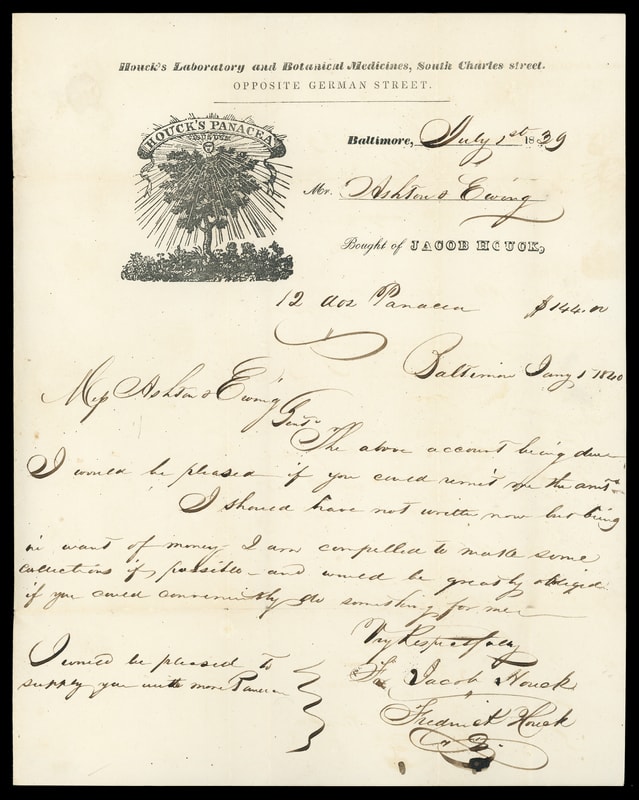 Houck's Laboratory and Botanical Medicines, South Charles street.
OPPOSITE GERMAN STREET.
HOUCK'S PANACEA
Baltimore, July 1st 1839
Mr. Ashton & Ewing
Bought of JACOB HOUCK,
12 doz Panacea $144.00
Baltimore Jany 1 1840
Mess Ashton & Ewing
Gents
The above account being due
I would be pleased if you could remit me the amt
I should have not written now but being
in want of money I am compelled to make some
collections if possible - and would be greatly obliged
if you could conveniently do something for me -
Vry Respectfully
Jacob Houck
Fredrick Houck
I would be pleased to
supply you with more Panacea